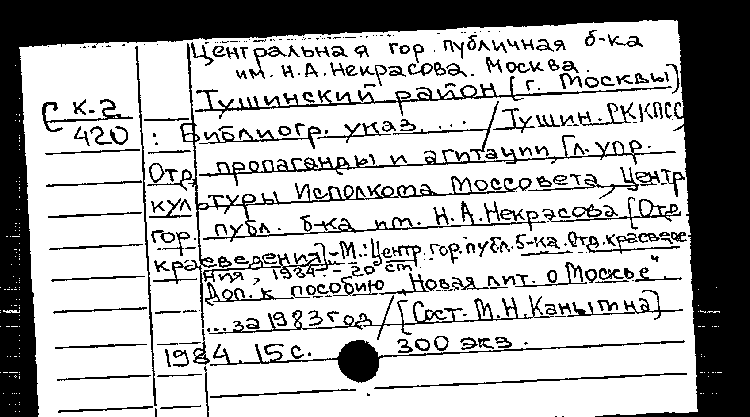 Центральная гор. публичная б-ка
им. Н.А.Некрасова. Москва.
Тушинский район (г. Москвы)
С К-2
420
: Библиогр. указ. ... / Тушин. РК КПСС,
Отд. пропаганды и агитации, Гл. упр.
культуры Исполкома Моссовета, Центр.
гор. публ. б-ка им. Н.А.Некрасова [Отд.
краеведения].-М.: Центр. гор. публ. б-ка. Отд. краеведе-
ния, 1984 - 20 см
Доп. к пособию „Новая лит. о Москве".
... за 1983 год / [Сост. М.Н.Каныгина]
1984. 15 с. 300 экз.